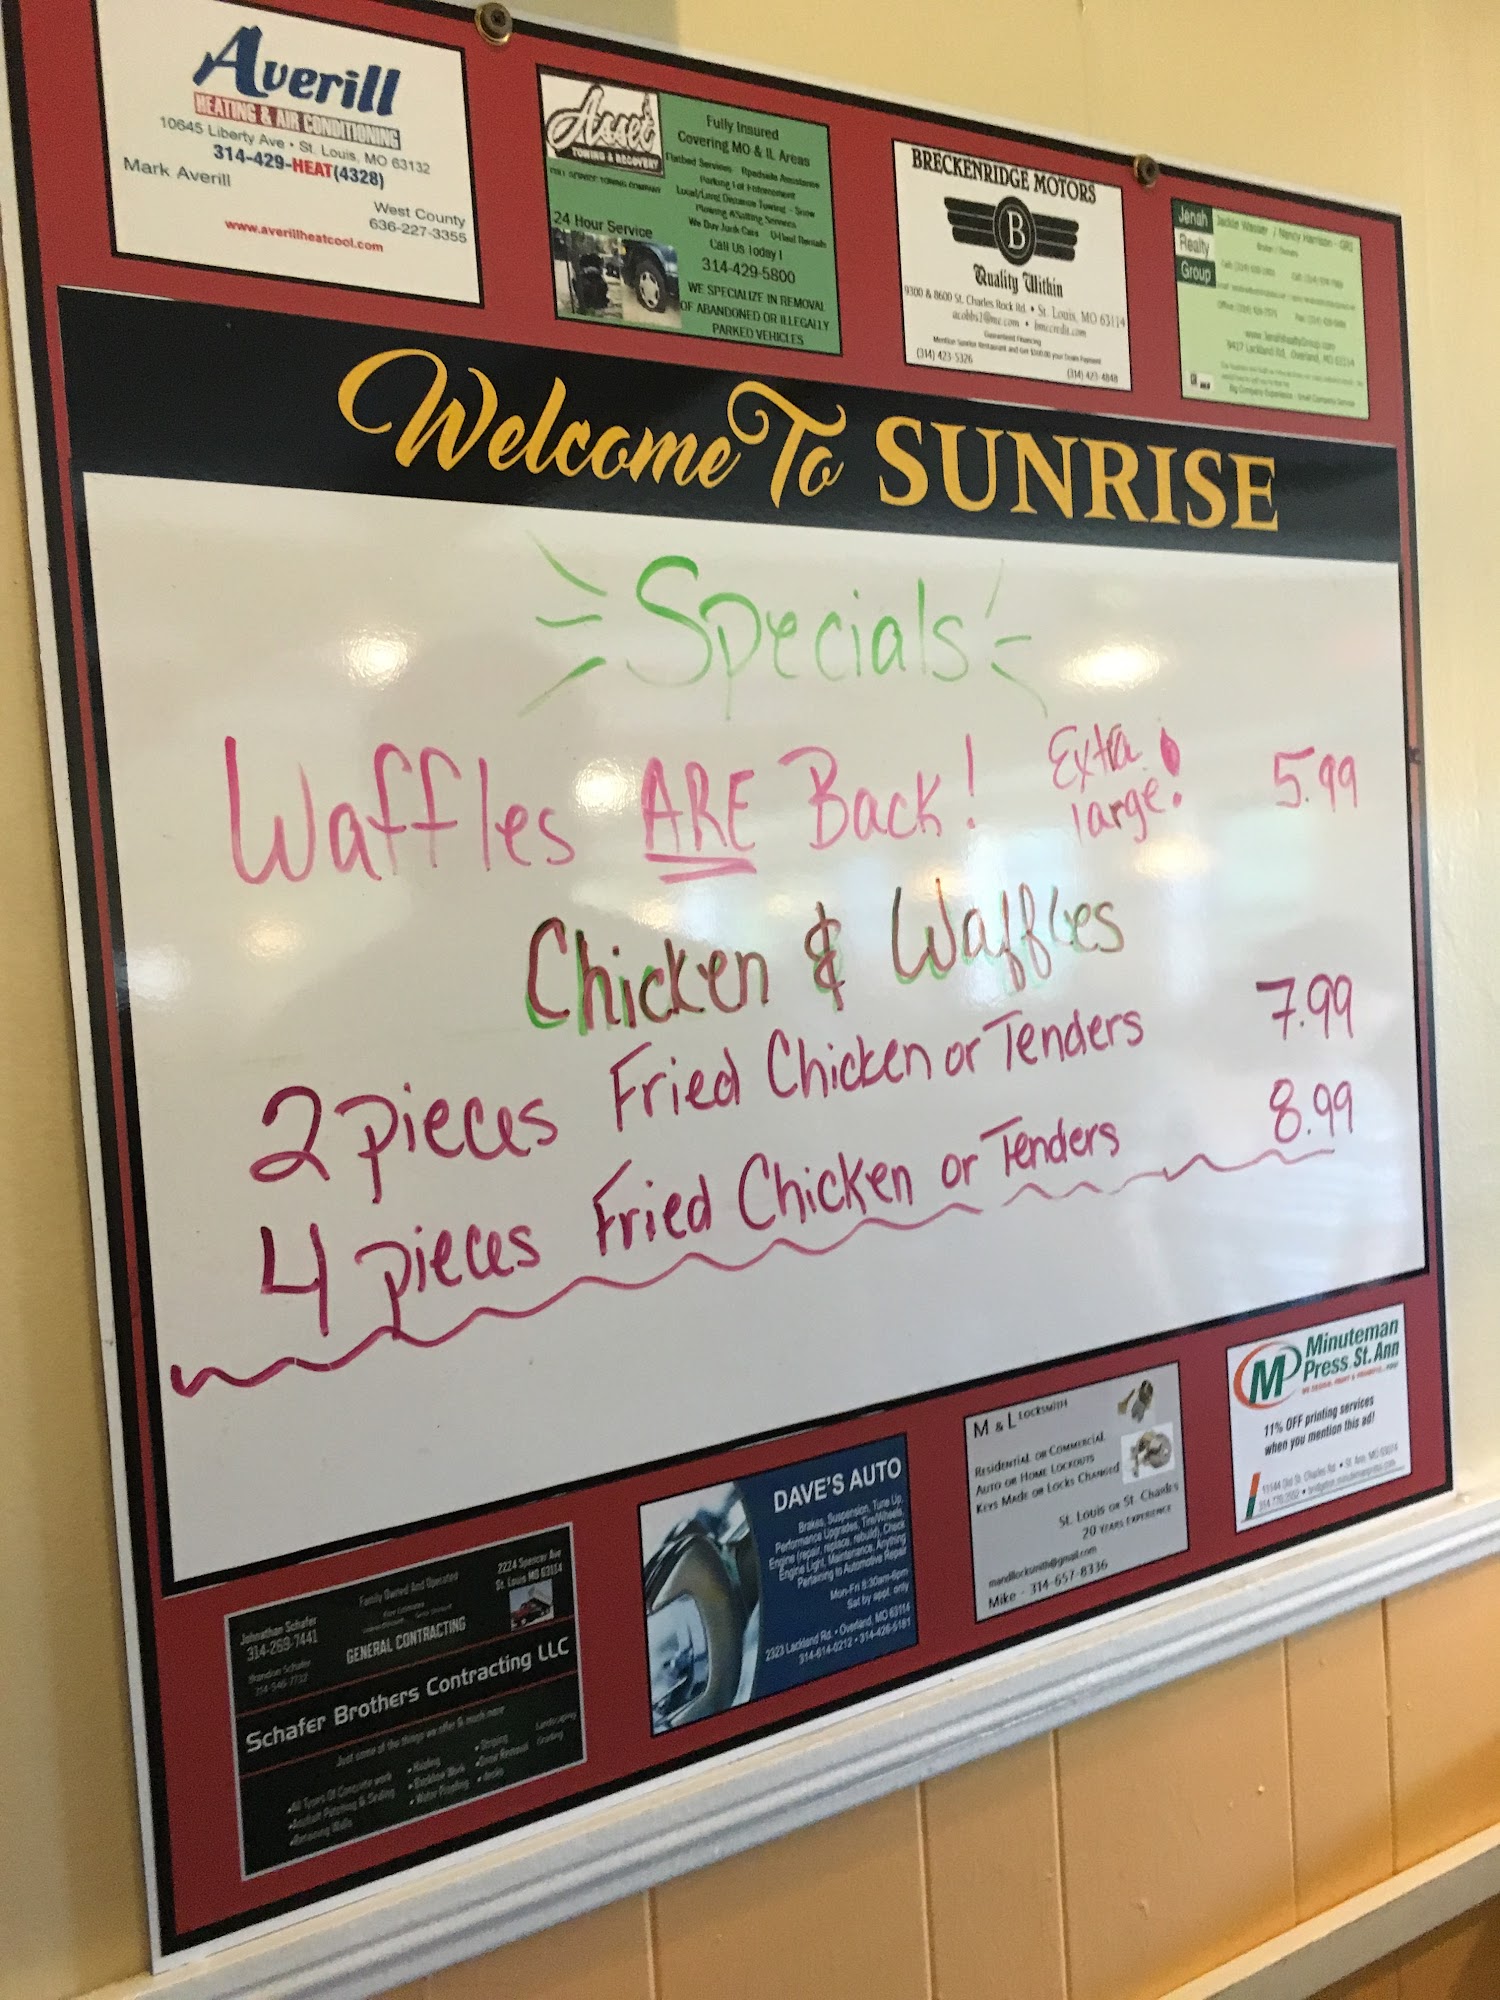 Averill
HEATING & AIR CONDITIONING
10645 Liberty Ave • St. Louis, MO 63132
314-429-HEAT(4328)
Mark Averill
West County
636-227-3355
www.averillheatcool.com
Asset
TOWING & RECOVERY
FULL SERVICE TOWING COMPANY
24 Hour Service
Fully Insured
Covering MO & IL Areas
Flatbed Services Roadside Assistance
Parking Lot Enforcement
Local/Long Distance Towing - Snow
Plowing & Salting Services
We Buy Junk Cars U-Haul Rentals
Call Us Today!
314-429-5800
WE SPECIALIZE IN REMOVAL
OF ABANDONED OR ILLEGALLY
PARKED VEHICLES
BRECKENRIDGE MOTORS
B
Quality Within
9300 & 8600 St. Charles Rock Rd. • St. Louis, MO 63114
acobbs1@mc.com • bmccredit.com
Guaranteed Financing
(314) 423-5326
(314) 423-4848
Jenah
Realty
Group
Jackie Wasser / Nancy Harrison - GRI
www.JenahRealtyGroup.com
9417 Lackland Rd, Overland, MO 63114
Big Company Experience - Small Company Service
Welcome To SUNRISE
Specials
Waffles ARE Back! Extra large! 5.99
Chicken & Waffles
2 pieces Fried Chicken or Tenders 7.99
4 pieces Fried Chicken or Tenders 8.99
Johnathan Schafer
314-269-7441
Brandon Schafer
314-546-7732
Family Owned And Operated
GENERAL CONTRACTING
2224 Spencer Ave
St. Louis MO 63114
Schafer Brothers Contracting LLC
Just some of the things we offer & much more
•All Types Of Concrete work
•Asphalt Patching & Sealing
•Retaining Walls
•Hauling
•Backhoe Work
•Water Proofing
•Striping
•Snow Removal
Landscaping
Grading
DAVE'S AUTO
Brakes, Suspension, Tune Up,
Performance Upgrades, Tire/Wheels,
Engine (repair, replace, rebuild), Check
Engine Light, Maintenance, Anything
Pertaining to Automotive Repair
Mon-Fri 8:30am-6pm
Sat by appt. only
2323 Lackland Rd. • Overland, MO 63114
314-614-0212 • 314-426-5181
M & L LOCKSMITH
RESIDENTIAL OR COMMERCIAL
AUTO OR HOME LOCKOUTS
KEYS MADE OR LOCKS CHANGED
ST. LOUIS OR ST. CHARLES
20 YEARS EXPERIENCE
mandllocksmith@gmail.com
Mike - 314-657-8336
Minuteman
Press St. Ann
WE DESIGN, PRINT & PROMOTE... YOU!
11% OFF printing services
when you mention this ad!
11144 Old St. Charles Rd • St. Ann, MO 63074